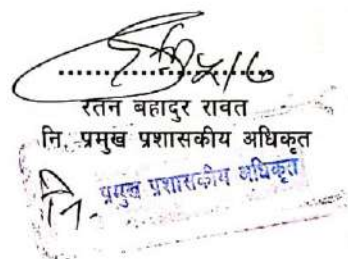 रतन बहादुर रावत
नि. प्रमुख प्रशासकीय अधिकृत
नि. प्रमुख प्रशासकीय अधिकृत